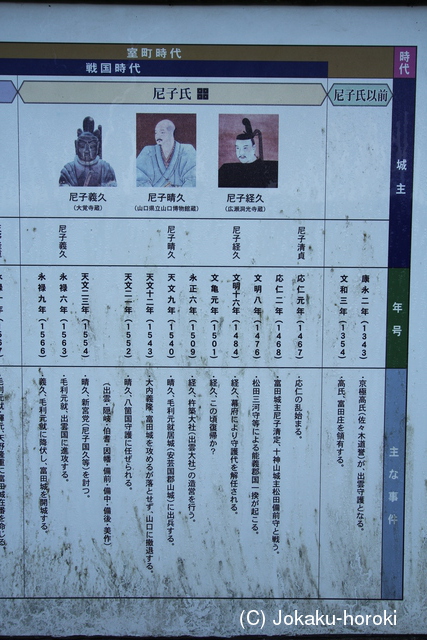 室町時代
時代
戦国時代
尼子氏
尼子氏以前
城主
尼子義久
(大覚寺蔵)
尼子晴久
(山口県立山口博物館蔵)
尼子経久
(広瀬洞光寺蔵)
尼子清貞
尼子経久
尼子晴久
尼子義久
年号
康永二年(1343)
文和三年(1354)
応仁元年(1467)
応仁二年(1468)
文明八年(1476)
文明十六年(1484)
文亀元年(1501)
永正六年(1509)
天文九年(1540)
天文十二年(1543)
天文二一年(1552)
天文二三年(1554)
永禄六年(1563)
永禄九年(1566)
主な事件
・京極高氏(佐々木道誉)が、出雲守護となる。
・高氏、富田庄を領有する。
・応仁の乱始まる。
・富田城主尼子清定、十神山城主松田備前守と戦う。
・松田三河守等による能義郡国一揆が起こる。
・経久、幕府により守護代を解任される。
・経久、この頃復帰か?
・経久、杵築大社(出雲大社)の造営を行う。
・晴久、毛利元就居城(安芸国郡山城)に出兵する。
・大内義隆、富田城を攻めるが落とせず、山口に撤退する。
・晴久、八箇国守護に任ぜられる。
(出雲・隠岐・伯耆・因幡・備前・備中・備後・美作)
・晴久、新宮党(尼子国久等)を討つ。
・毛利元就、出雲国に進攻する。
・義久、毛利元就に降伏し、富田城を開城する。
(C) Jokaku-horoki